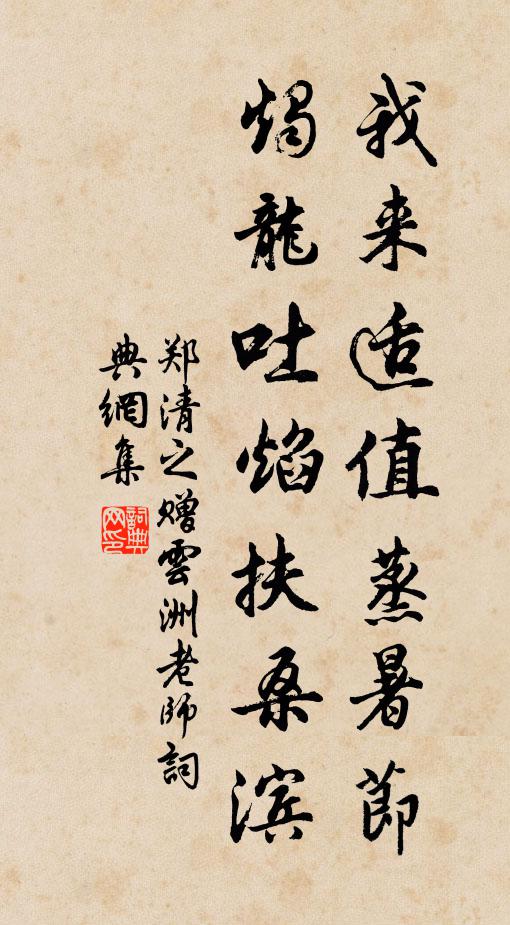 我来适值蒸暑節
燭龍吐焰扶桑滨
郑清之赠雲洲老师詞
典網集
詞典网印